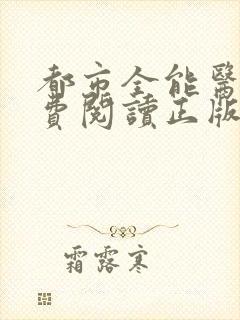 都市全能醫
費閱讀正版
霜露寒